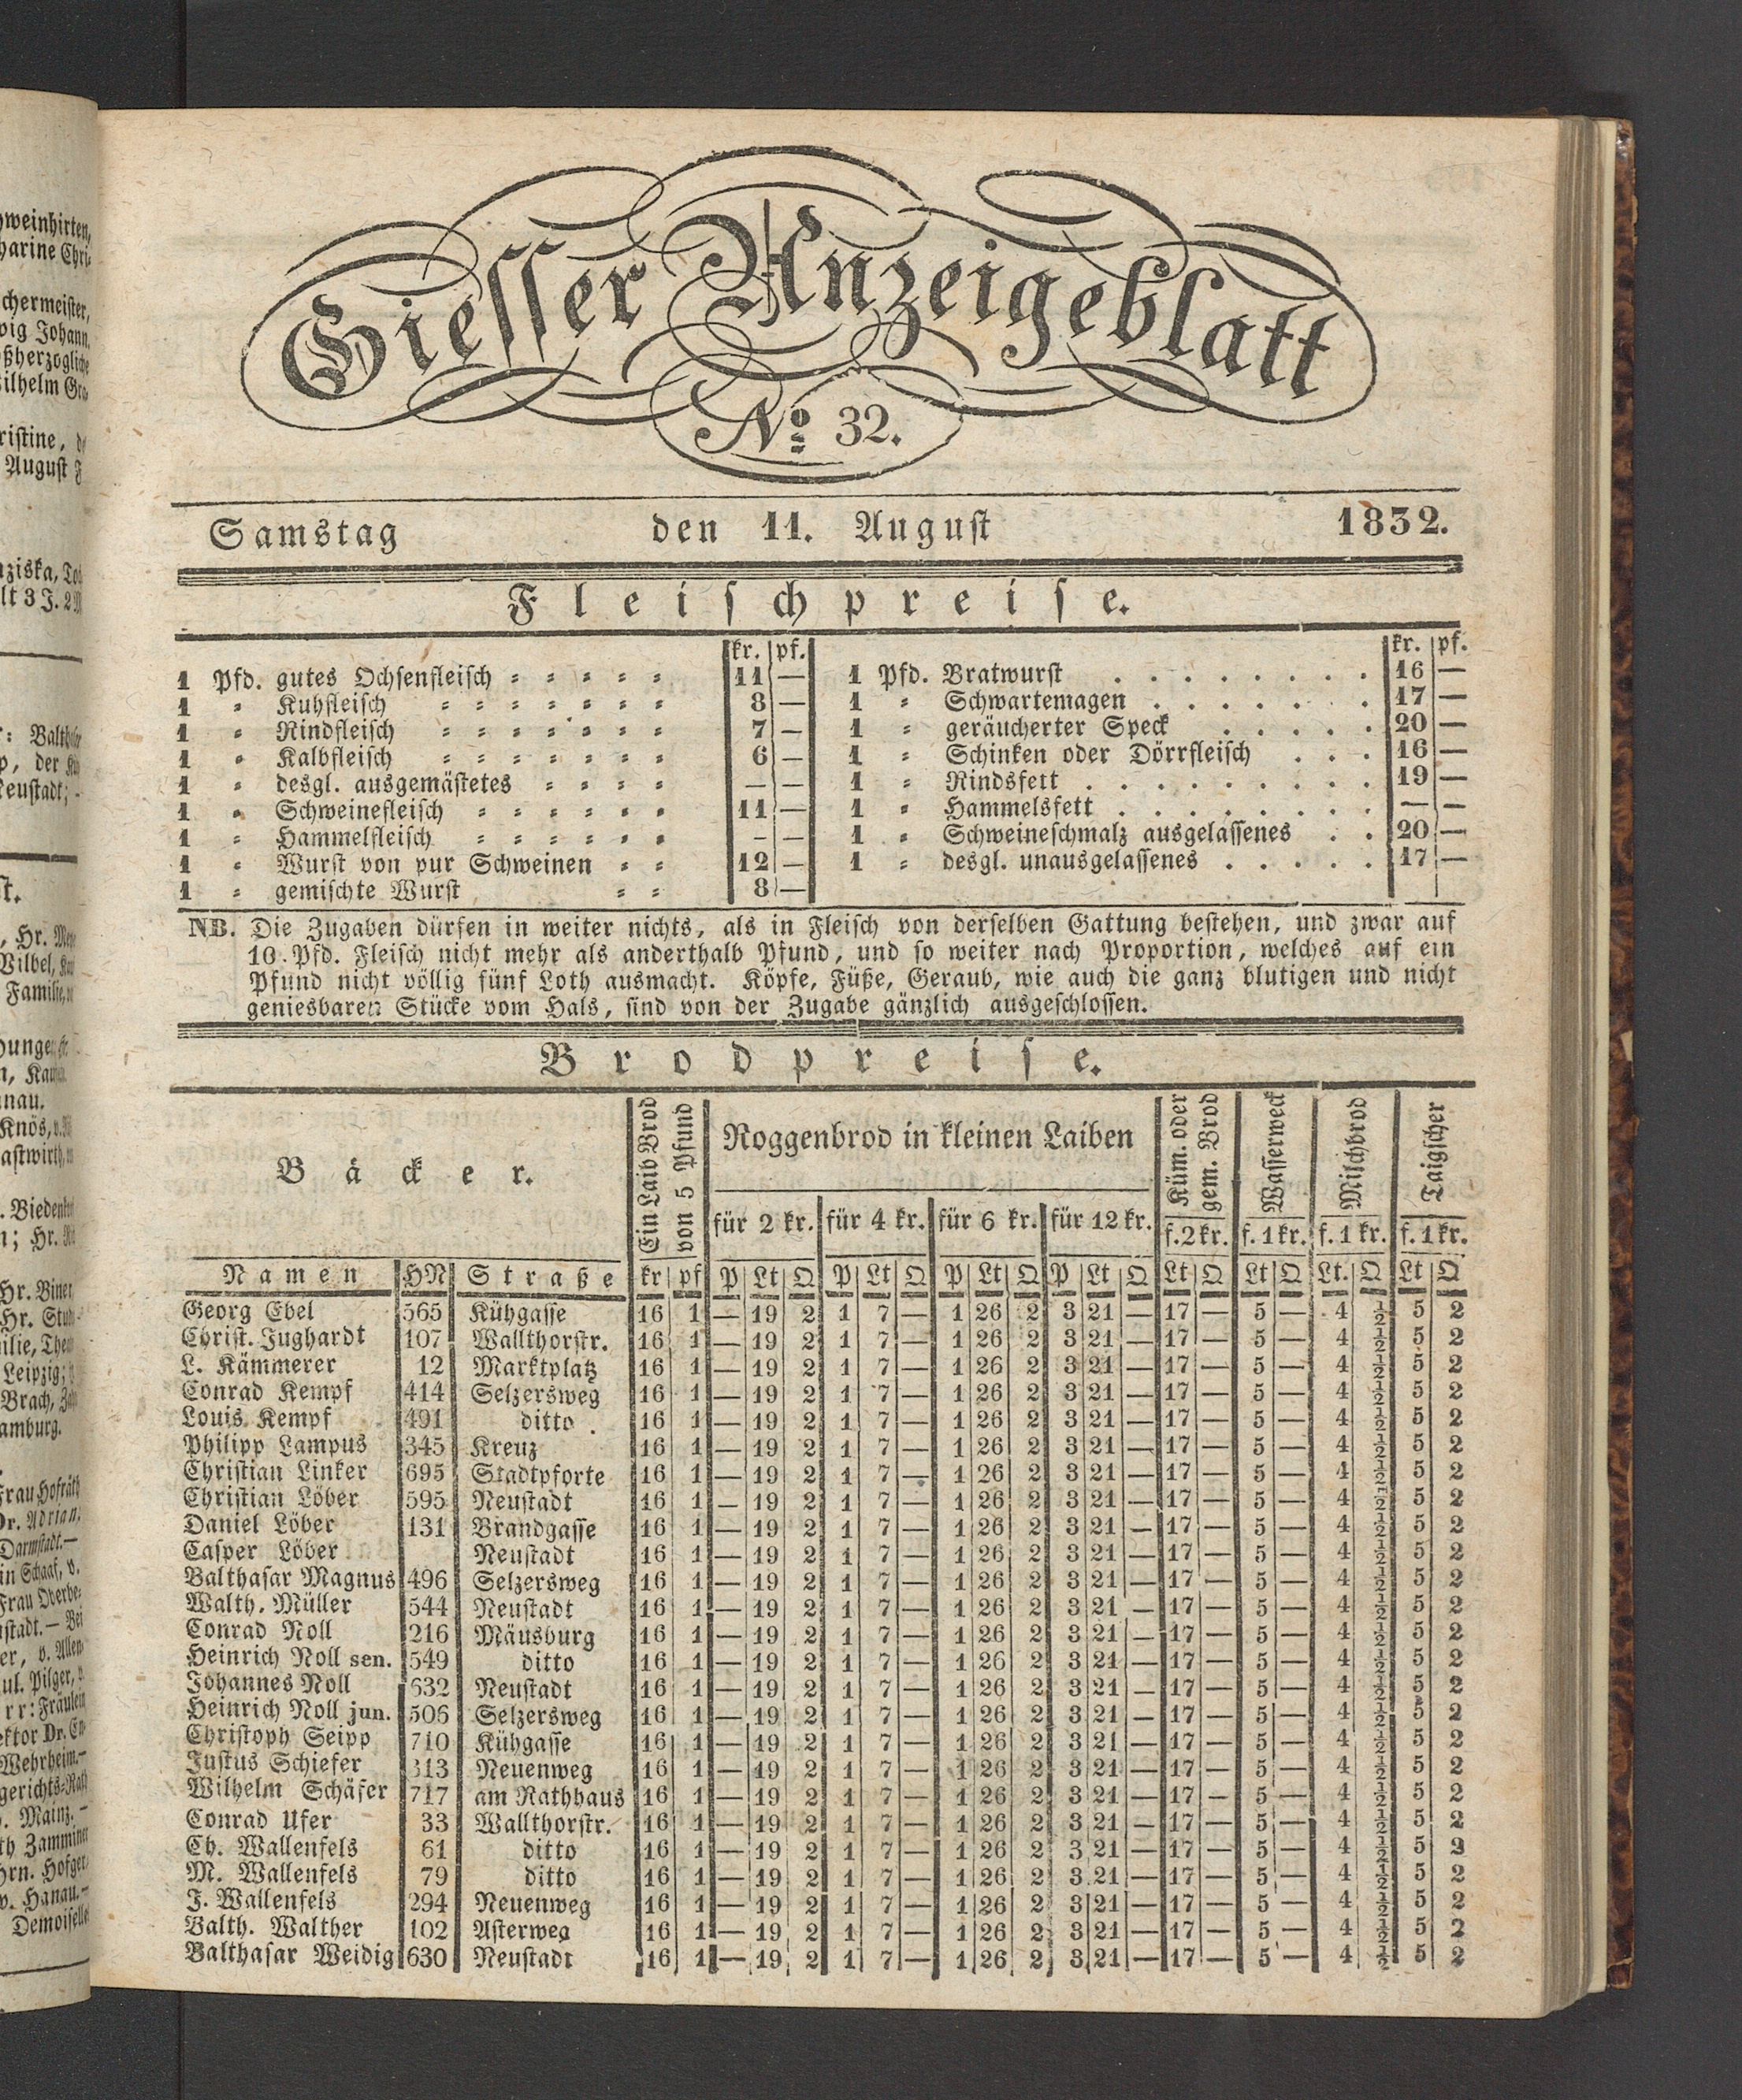 Giesser Anzeigeblatt
No. 32.
Samstag den 11. August 1832.
Fleischpreise.
kr. pf. kr. pf.
1 Pfd. gutes Ochsenfleisch = = = = = 11 — 1 Pfd. Bratwurst . . . . . . . . 16 —
1 = Kuhfleisch = = = = = = = 8 — 1 = Schwartemagen . . . . . . . 17 —
1 = Rindfleisch = = = = = = = 7 — 1 = geräucherter Speck . . . . . 20 —
1 = Kalbfleisch = = = = = = = 6 — 1 = Schinken oder Dörrfleisch . . . 16 —
1 = desgl. ausgemästetes = = = = — — 1 = Rindsfett . . . . . . . . . 19 —
1 = Schweinefleisch = = = = = = 11 — 1 = Hammelsfett . . . . . . . . — —
1 = Hammelfleisch = = = = = = — — 1 = Schweineschmalz ausgelassenes . . 20 —
1 = Wurst von pur Schweinen = = 12 — 1 = desgl. unausgelassenes . . . . . 17 —
1 = gemischte Wurst = = 8 —
NB. Die Zugaben dürfen in weiter nichts, als in Fleisch von derselben Gattung bestehen, und zwar auf
10 Pfd. Fleisch nicht mehr als anderthalb Pfund, und so weiter nach Proportion, welches auf ein
Pfund nicht völlig fünf Loth ausmacht. Köpfe, Füße, Geraub, wie auch die ganz blutigen und nicht
geniesbaren Stücke vom Hals, sind von der Zugabe gänzlich ausgeschlossen.
Brodpreise.
Bäcker. Ein Laib Brod von 5 Pfund Roggenbrod in kleinen Laiben Küm. oder gem. Brod Wasserweck Milchbrod Taigscher
für 2 kr. für 4 kr. für 6 kr. für 12 kr. f. 2 kr. f. 1 kr. f. 1 kr. f. 1 kr.
Namen HN Straße kr pf P Lt Q P Lt Q P Lt Q P Lt Q Lt Q Lt Q Lt. Q Lt Q
Georg Ebel 565 Kühgasse 16 1 — 19 2 1 7 — 1 26 2 3 21 — 17 — 5 — 4 ½ 5 2
Christ. Jughardt 107 Wallthorstr. 16 1 — 19 2 1 7 — 1 26 2 3 21 — 17 — 5 — 4 ½ 5 2
L. Kämmerer 12 Marktplatz 16 1 — 19 2 1 7 — 1 26 2 3 21 — 17 — 5 — 4 ½ 5 2
Conrad Kempf 414 Selzersweg 16 1 — 19 2 1 7 — 1 26 2 3 21 — 17 — 5 — 4 ½ 5 2
Louis Kempf 491 ditto 16 1 — 19 2 1 7 — 1 26 2 3 21 — 17 — 5 — 4 ½ 5 2
Philipp Lampus 345 Kreuz 16 1 — 19 2 1 7 — 1 26 2 3 21 — 17 — 5 — 4 ½ 5 2
Christian Linker 695 Stadtpforte 16 1 — 19 2 1 7 — 1 26 2 3 21 — 17 — 5 — 4 ½ 5 2
Christian Löber 595 Neustadt 16 1 — 19 2 1 7 — 1 26 2 3 21 — 17 — 5 — 4 ½ 5 2
Daniel Löber 131 Brandgasse 16 1 — 19 2 1 7 — 1 26 2 3 21 — 17 — 5 — 4 ½ 5 2
Casper Löber Neustadt 16 1 — 19 2 1 7 — 1 26 2 3 21 — 17 — 5 — 4 ½ 5 2
Balthasar Magnus 496 Selzersweg 16 1 — 19 2 1 7 — 1 26 2 3 21 — 17 — 5 — 4 ½ 5 2
Walth. Müller 544 Neustadt 16 1 — 19 2 1 7 — 1 26 2 3 21 — 17 — 5 — 4 ½ 5 2
Conrad Noll 216 Mäusburg 16 1 — 19 2 1 7 — 1 26 2 3 21 — 17 — 5 — 4 ½ 5 2
Heinrich Noll sen. 549 ditto 16 1 — 19 2 1 7 — 1 26 2 3 21 — 17 — 5 — 4 ½ 5 2
Johannes Noll 632 Neustadt 16 1 — 19 2 1 7 — 1 26 2 3 21 — 17 — 5 — 4 ½ 5 2
Heinrich Noll jun. 506 Selzersweg 16 1 — 19 2 1 7 — 1 26 2 3 21 — 17 — 5 — 4 ½ 5 2
Christoph Seipp 710 Kühgasse 16 1 — 19 2 1 7 — 1 26 2 3 21 — 17 — 5 — 4 ½ 5 2
Justus Schiefer 313 Neuenweg 16 1 — 19 2 1 7 — 1 26 2 3 21 — 17 — 5 — 4 ½ 5 2
Wilhelm Schäfer 717 am Rathhaus 16 1 — 19 2 1 7 — 1 26 2 3 21 — 17 — 5 — 4 ½ 5 2
Conrad Ufer 33 Wallthorstr. 16 1 — 19 2 1 7 — 1 26 2 3 21 — 17 — 5 — 4 ½ 5 2
Ch. Wallenfels 61 ditto 16 1 — 19 2 1 7 — 1 26 2 3 21 — 17 — 5 — 4 ½ 5 2
M. Wallenfels 79 ditto 16 1 — 19 2 1 7 — 1 26 2 3 21 — 17 — 5 — 4 ½ 5 2
J. Wallenfels 294 Neuenweg 16 1 — 19 2 1 7 — 1 26 2 3 21 — 17 — 5 — 4 ½ 5 2
Balth. Walther 102 Asterweg 16 1 — 19 2 1 7 — 1 26 2 3 21 — 17 — 5 — 4 ½ 5 2
Balthasar Weidig 630 Neustadt 16 1 — 19 2 1 7 — 1 26 2 3 21 — 17 — 5 — 4 ½ 5 2